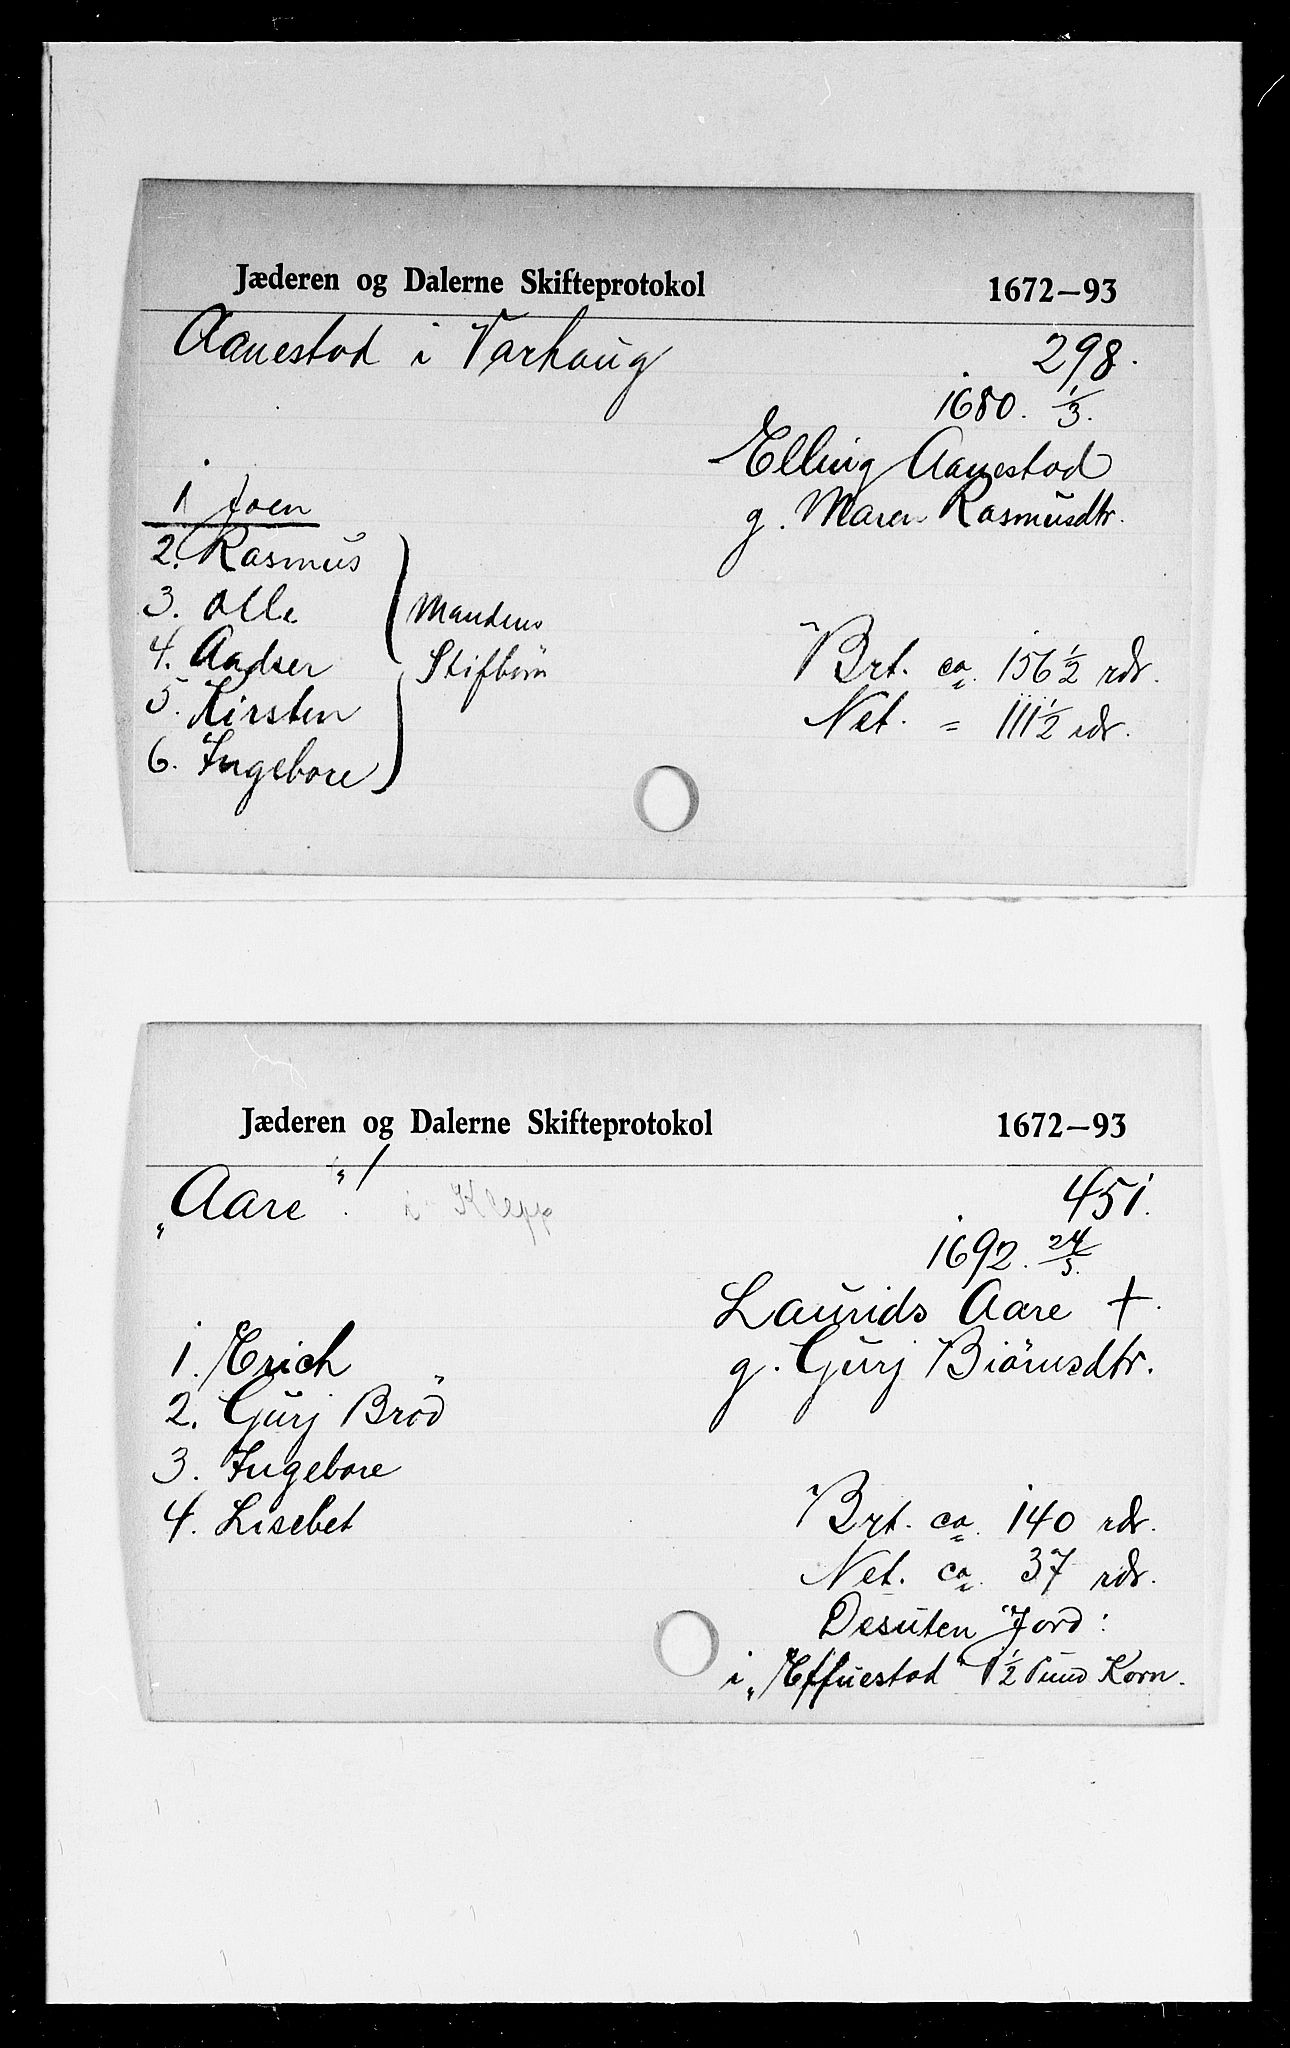 Jæderen og Dalerne Skifteprotokol 1672–93
Aanestad i Varhaug 298.
1680. 1/3.
Elling Aanestad
g. Maren Rasmusdtr.
1 Joen
2. Rasmus
3. Olle
4. Aadser
5. Kirsten
6. Ingebore
Mandens
Stifbørn
Brt. ca. 156 1/2 rdr.
Net. = 111 1/2 rdr.
Jæderen og Dalerne Skifteprotokol 1672–93
„Aare“! i Klepp 451.
1692. 24/5.
Laurids Aare +.
g. Gurj Biörnsdtr.
1. Erich
2. Gurj Bröd
3. Ingebore
4. Lisebet
Brt. ca. 140 rdr.
Net. ca. 37 rdr.
Desuten Jord:
i „Effuestad“ 1 1/2 Pund Korn.